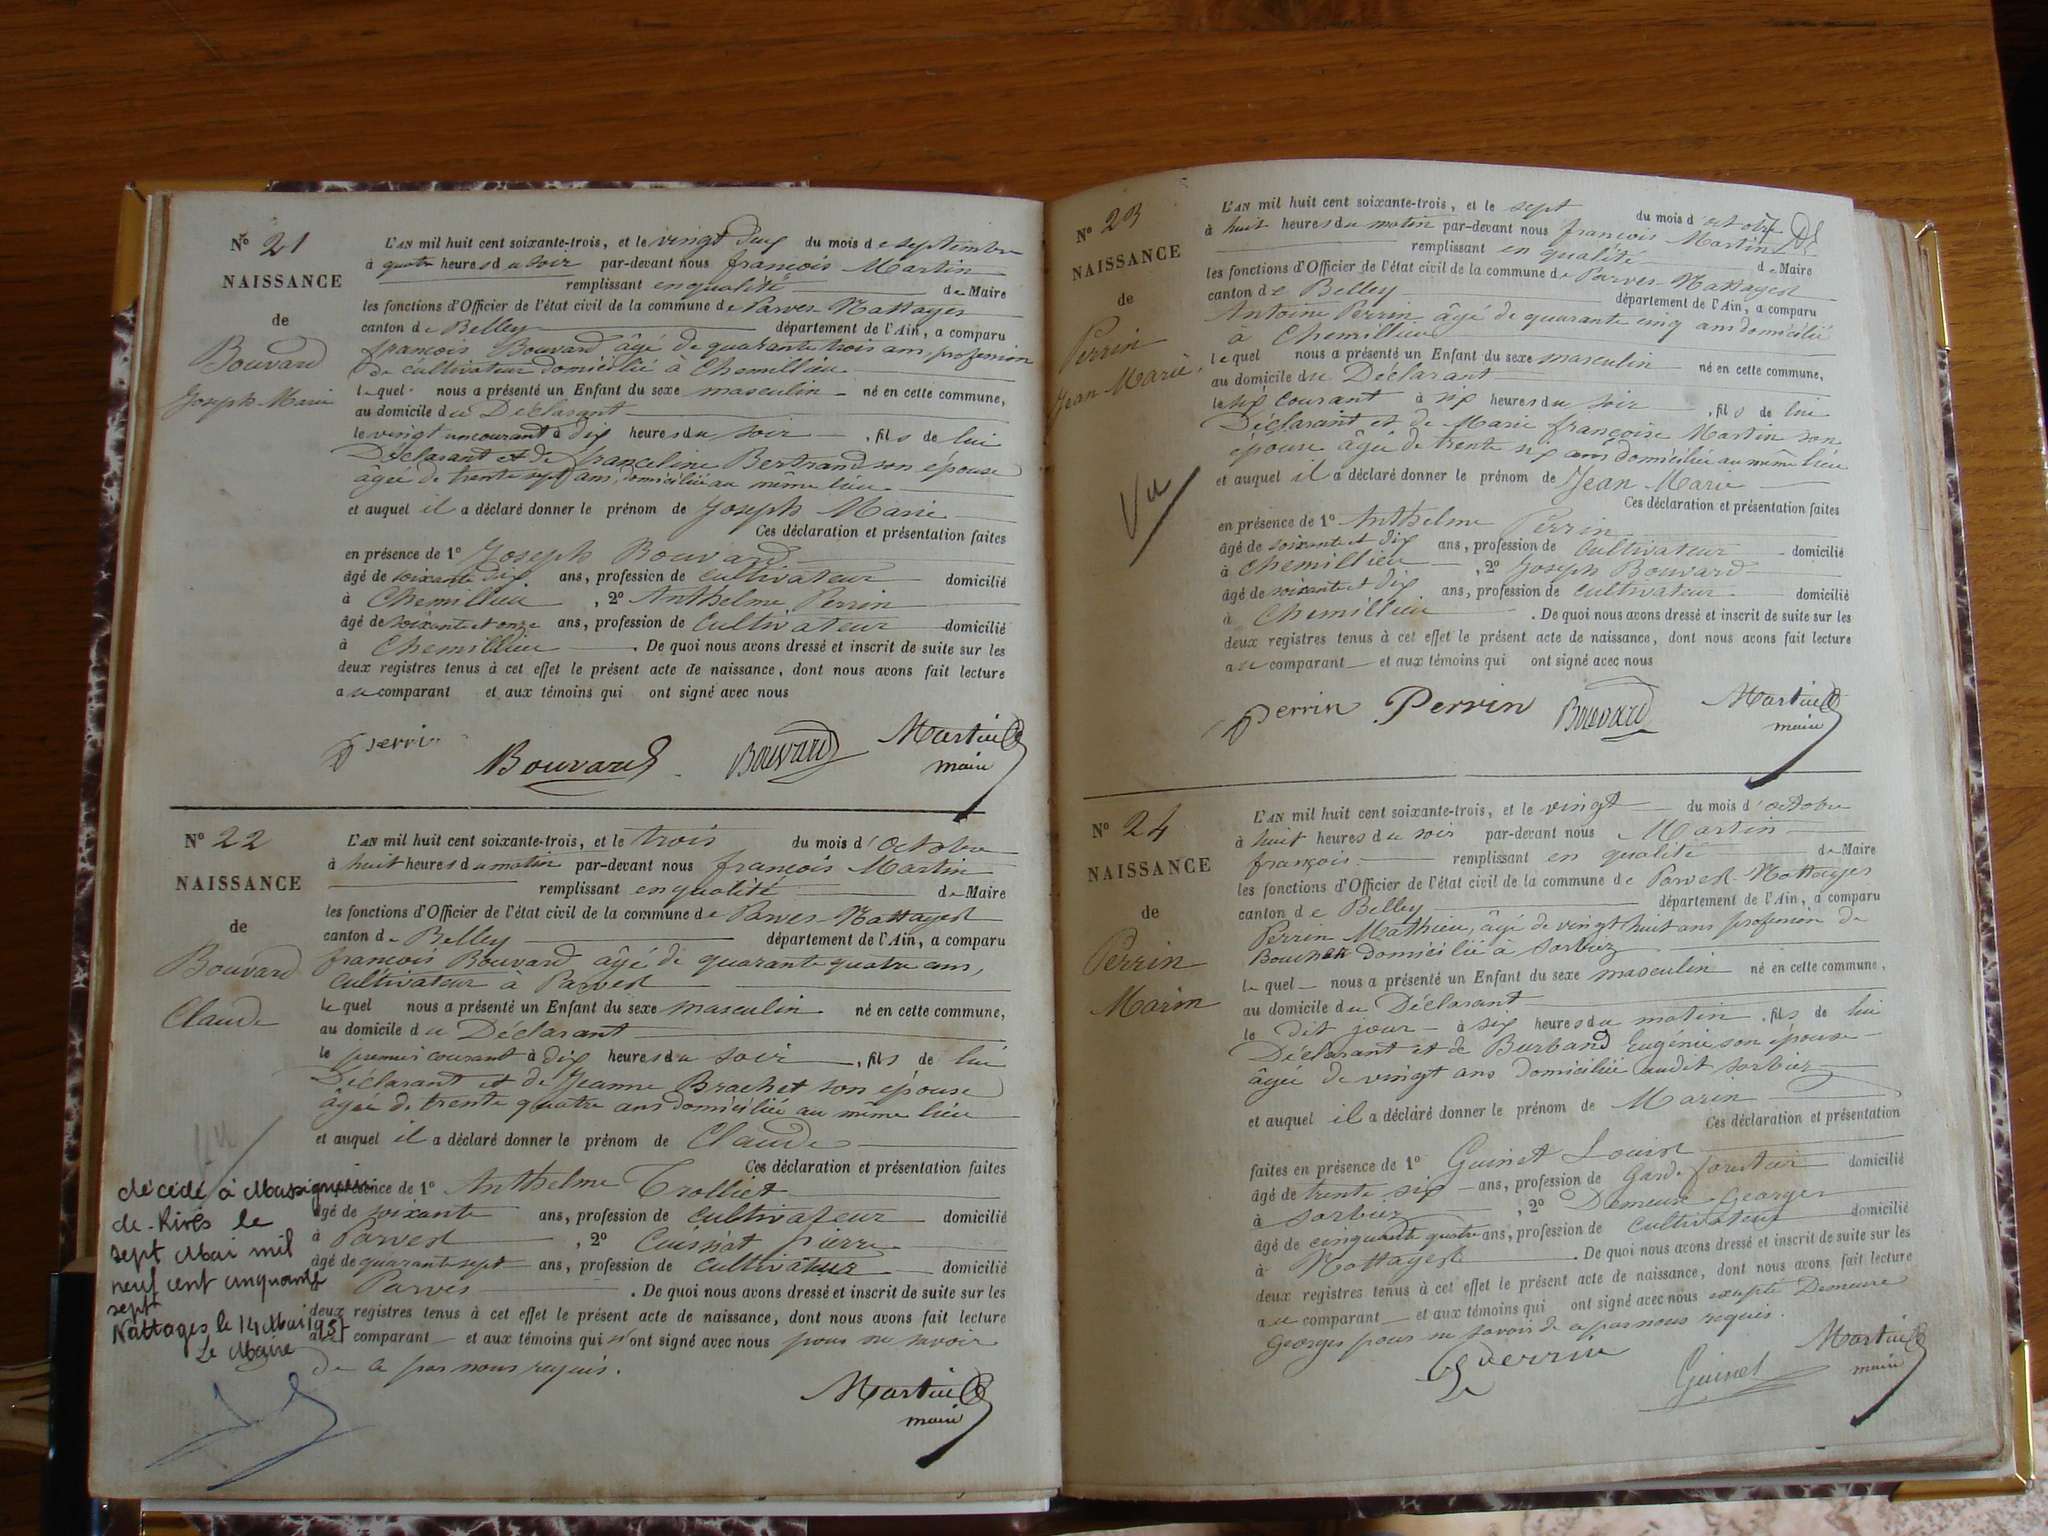 N° 21
NAISSANCE
de
Bouvard
Joseph Marie
L'AN mil huit cent soixante-trois, et le vingt deux du mois de septembre
à quatre heures du soir par-devant nous françois Martin
remplissant en qualité de Maire
les fonctions d'Officier de l'état civil de la commune de Parves-Nattages
canton de Belley département de l'Ain, a comparu
françois Bouvard âgé de quarante trois ans profession
de cultivateur domicilié à Chemillieu
lequel nous a présenté un Enfant du sexe masculin né en cette commune,
au domicile du Déclarant
le vingt un courant à dix heures du soir, fils de lui
Déclarant et de franceline Bertrand son épouse
âgée de trente sept ans domiciliée au même lieu
et auquel il a déclaré donner le prénom de Joseph Marie
Ces déclaration et présentation faites
en présence de 1° Joseph Bouvard
âgé de soixante dix ans, profession de cultivateur domicilié
à Chemillieu, 2° Anthelme Perrin
âgé de soixante et onze ans, profession de cultivateur domicilié
à Chemillieu. De quoi nous avons dressé et inscrit de suite sur les
deux registres tenus à cet effet le présent acte de naissance, dont nous avons fait lecture
au comparant et aux témoins qui ont signé avec nous
Perrin Bouvard Bouvard Martin
maire
N° 22
NAISSANCE
de
Bouvard
Claude
L'AN mil huit cent soixante-trois, et le trois du mois d'octobre
à huit heures du matin par-devant nous françois Martin
remplissant en qualité de Maire
les fonctions d'Officier de l'état civil de la commune de Parves-Nattages
canton de Belley département de l'Ain, a comparu
francois Bouvard âgé de quarante quatre ans,
cultivateur à Parves
lequel nous a présenté un Enfant du sexe masculin né en cette commune,
au domicile du Déclarant
le premier courant à dix heures du soir, fils de lui
Déclarant et de Jeanne Brachet son épouse
âgée de trente quatre ans domiciliée au même lieu
et auquel il a déclaré donner le prénom de Claude
Ces déclaration et présentation faites
en présence de 1° Anthelme Trolliet
âgé de soixante ans, profession de cultivateur domicilié
à Parves, 2° Cuisinat pierre
âgé de quarante sept ans, profession de cultivateur domicilié
Parves. De quoi nous avons dressé et inscrit de suite sur les
deux registres tenus à cet effet le présent acte de naissance, dont nous avons fait lecture
au comparant et aux témoins qui n'ont signé avec nous pour ne savoir
de ce par nous requis.
Martin
maire
Vu
décédé à Massignieu
de-Rives le
sept Mai mil
neuf cent cinquante
sept
Nattages le 14 Mai 1957
Le Maire
N° 23
NAISSANCE
de
Perrin
Jean Marie
Vu
L'AN mil huit cent soixante-trois, et le sept du mois d'octobre
à huit heures du matin par-devant nous françois Martin
remplissant en qualité de Maire
les fonctions d'Officier de l'état civil de la commune de Parves-Nattages
canton de Belley département de l'Ain, a comparu
Antoine Perrin âgé de quarante cinq ans domicilié
à Chemillieu
lequel nous a présenté un Enfant du sexe masculin né en cette commune,
au domicile du Déclarant
le six courant à six heures du soir, fils de lui
Déclarant et de Marie françoise Martin son
épouse âgée de trente six ans domiciliée au même lieu
et auquel il a déclaré donner le prénom de Jean Marie
Ces déclaration et présentation faites
en présence de 1° Anthelme Perrin
âgé de soixante et dix ans, profession de cultivateur domicilié
à Chemillieu, 2° Joseph Bouvard
âgé de soixante et dix ans, profession de cultivateur domicilié
à Chemillieu. De quoi nous avons dressé et inscrit de suite sur les
deux registres tenus à cet effet le présent acte de naissance, dont nous avons fait lecture
au comparant et aux témoins qui ont signé avec nous
Perrin Perrin Bouvard Martin
maire
N° 24
NAISSANCE
de
Perrin
Marin
L'AN mil huit cent soixante-trois, et le vingt du mois d'octobre
à huit heures du soir par-devant nous Martin
françois remplissant en qualité de Maire
les fonctions d'Officier de l'état civil de la commune de Parves-Nattages
canton de Belley département de l'Ain, a comparu
Perrin Mathieu, âgé de vingt huit ans profession de
Boucher domicilié à Sorbiez
lequel nous a présenté un Enfant du sexe masculin né en cette commune,
au domicile du Déclarant
le dit jour à six heures du matin, fils de lui
Déclarant et de Burband Eugénie son épouse
âgée de vingt ans domiciliée audit Sorbiez
et auquel il a déclaré donner le prénom de Marin
Ces déclaration et présentation
faites en présence de 1° Guinet Louis
âgé de trente six ans, profession de Garde forestier domicilié
à Sorbiez, 2° Demeure Georges
âgé de cinquante quatre ans, profession de cultivateur domicilié
à Nattages. De quoi nous avons dressé et inscrit de suite sur les
deux registres tenus à cet effet le présent acte de naissance, dont nous avons fait lecture
au comparant et aux témoins qui ont signé avec nous excepté Demeure
Georges pour ne savoir de ce par nous requis.
Perrin Guinet Martin
maire